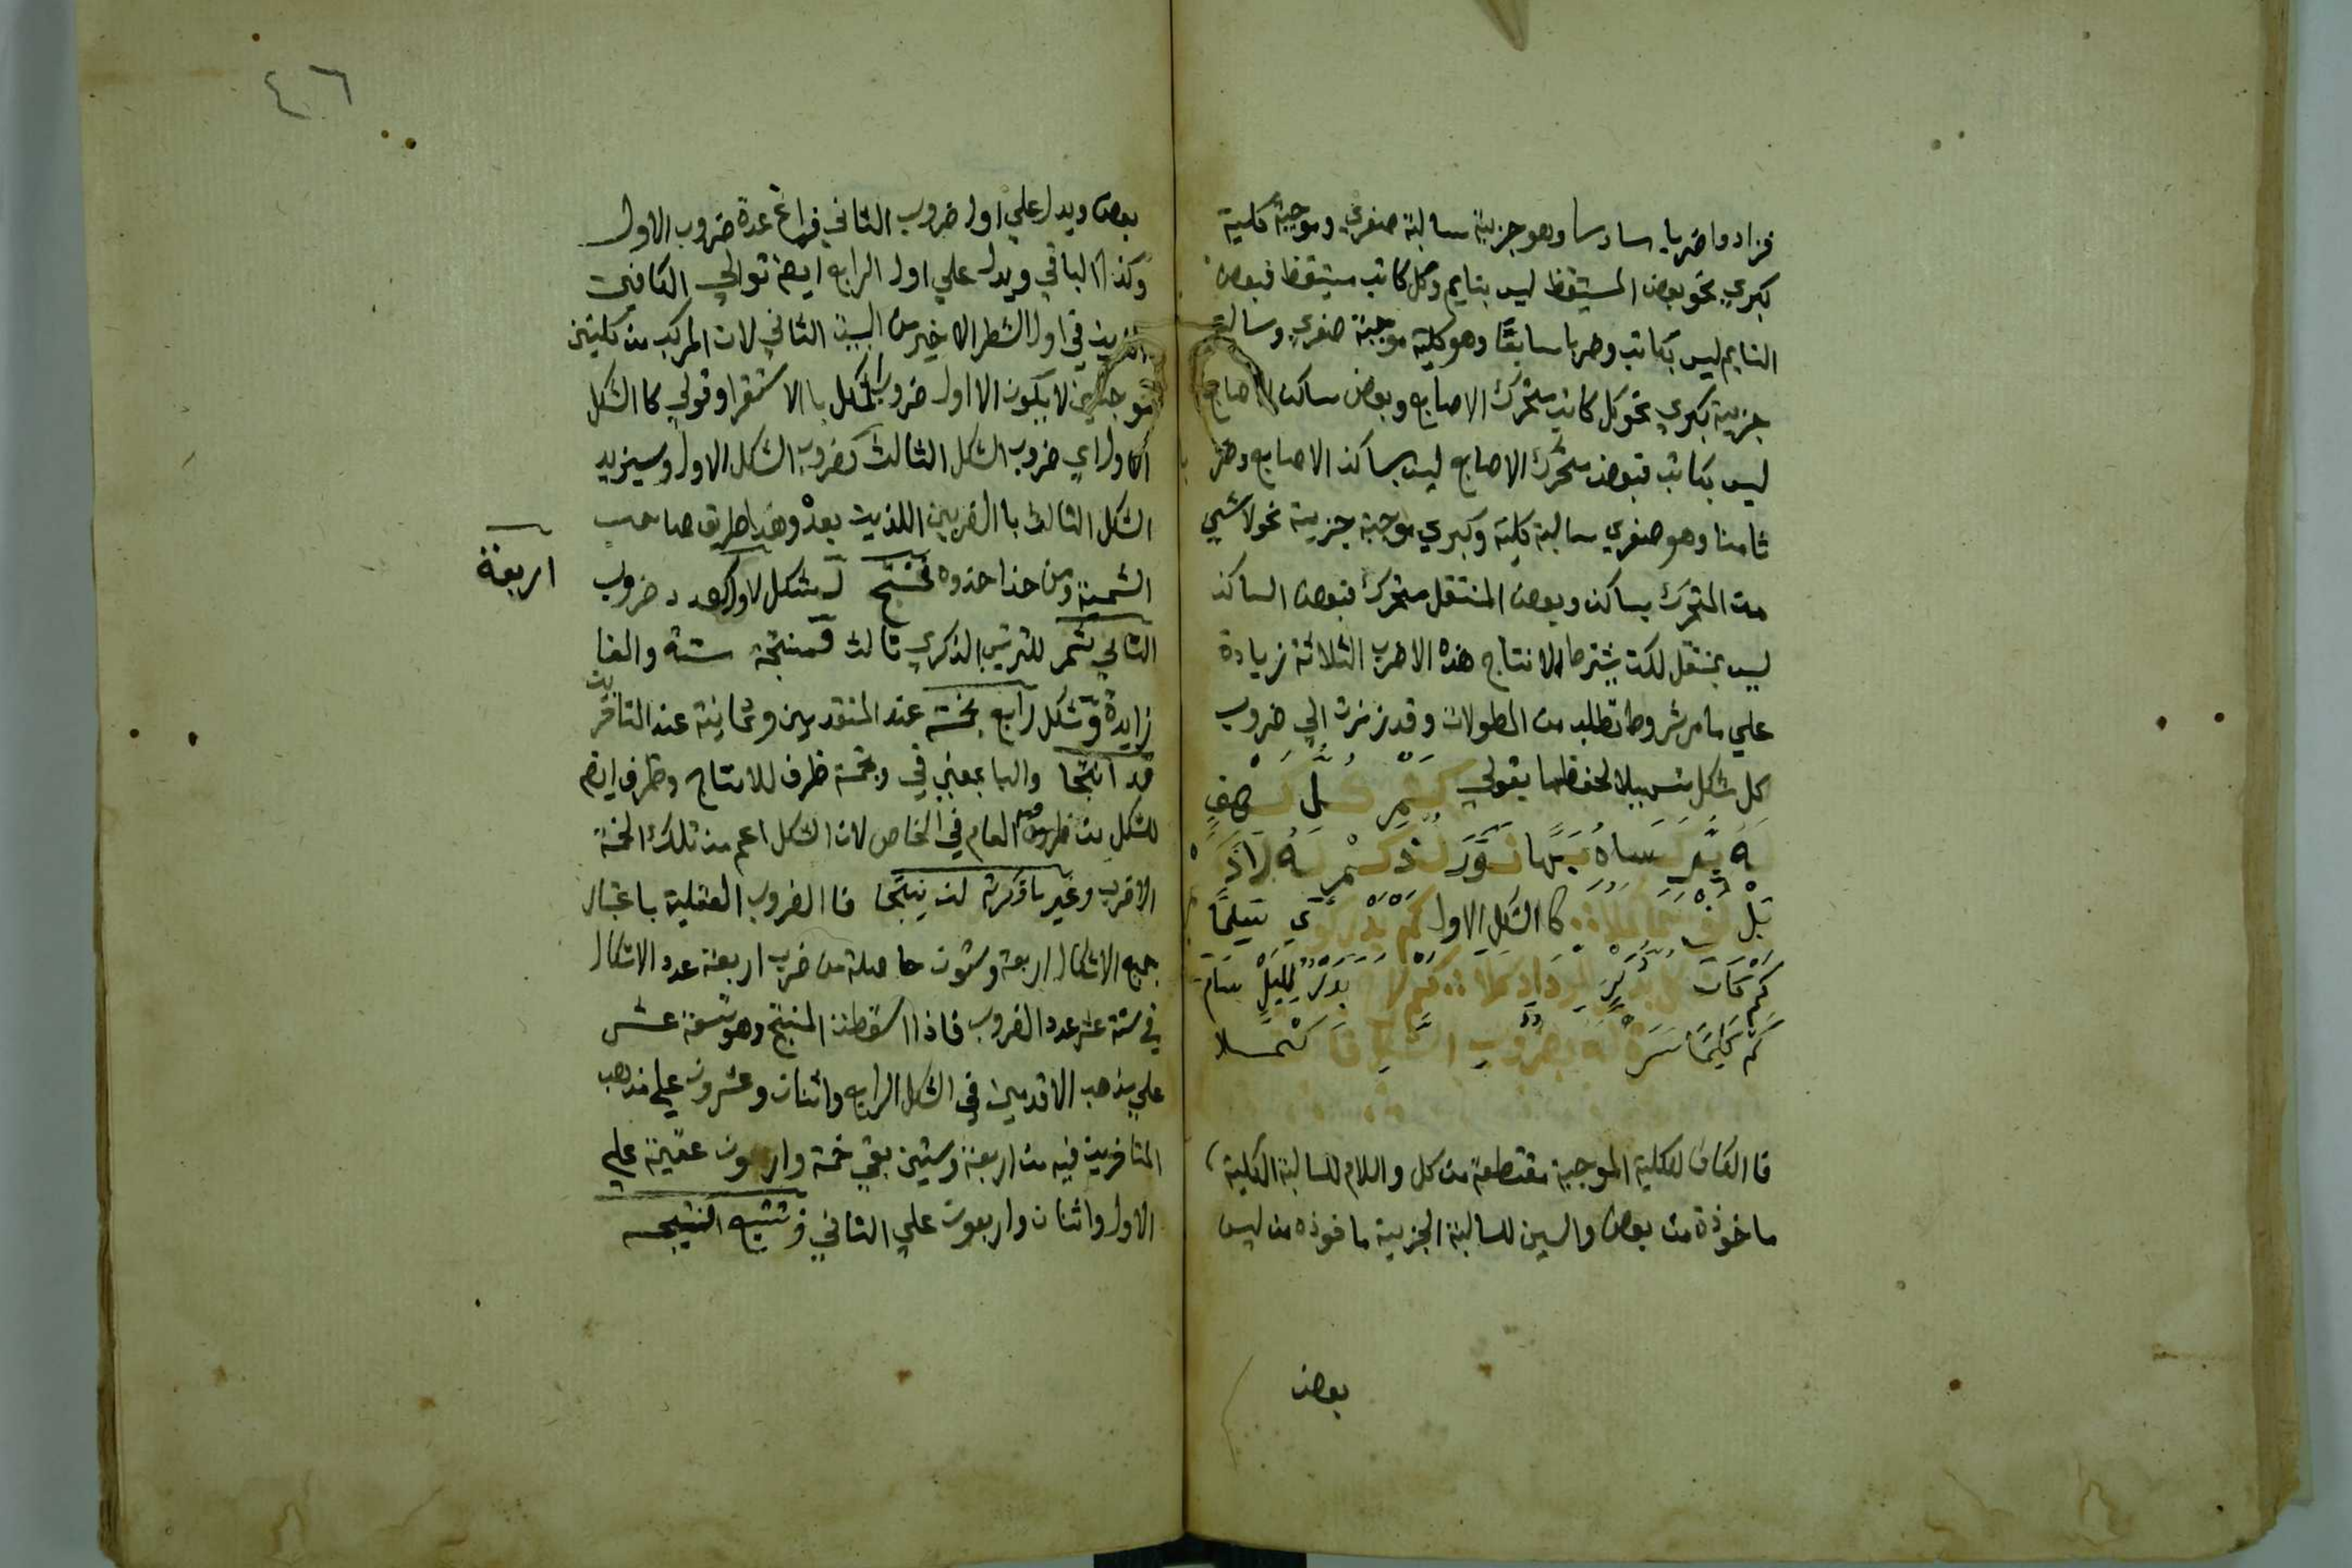 فزادوا ضربا سادسا وهو جزيية سالبة صغري وموجبة كلية
كبري نحو بعض المستيقظ ليس بنايم وكل كاتب مستيقظ فبعض
النايم ليس بكاتب وضربا سابعًا وهو كلية موجبة صغري وسالبة
جزيية كبري نحو كل كاتب متحرك الاصابع وبعض ساكن الاصابع
ليس بكاتب فبعض متحرك الاصابع ليس بساكن الاصابع وضربا
ثامنا وهو صغري سالبة كلية وكبري موجبة جزيية نحو لا شيي
من المتحرك بساكن وبعض المنتقل متحرك فبعض الساكن
ليس بمنتقل لكن يشترط لانتاج هذه الاضرب الثلاثة زيادة
علي ما مر شروط تطلب من المطولات وقد رمزت الي ضروب
كل شكل تسهيلا لحفظها بقولي
كا الشكل الاول
فا الكاف للكلية الموجبة مقتطعة من كل واللام للسالبة الكلية
ماخوذة من بعض والسين للسالبة الجزيية ماخوذه من ليس
بعض
٤٦
بعض ويدل علي اول ضروب الثاني فراغ عدة ضروب الاول
وكذا الباقي ويدل علي اول الرابع ايضا توالي الكافين
في اول الشطر الاخير من البيت الثاني لان المركب من كليتين
موجبتين لا يكون الا اول ضروب الشكل بالاستقرا وقولي كا الشكل
الاول اي ضروب الشكل الثالث كضروب الشكل الاول وسيزيد
الشكل الثالث با الضربين اللذين بعد وهذا طريق صاحب
الشمسية ومن حذا حذوه فمنتج لشكل لاول كعدد ضروب
اربعة
الثاني ثم للترتيب الذكري ثالث فمنتجه ستة والفا
زايدة وشكل رابع بخمسة عند المتقدمين وثمانية عند المتاخرين
قد انتجا والبا بمعني في وبخمسة ظرف للانتاج وظرف ايضا
للشكل من ظروف العام في الخاص لان الشكل اعم من تلك الخمسة
الاضرب وغير ما ذكرته لن ينتجا فا الضروب العقلية باعتبار
جميع الاشكال اربعة وستون حاصلة من ضرب اربعة عدد الاشكال
في ستة عشر عدد الضروب فاذا اسقطت المنتج وهو تسعة عشر
علي مذهب الاقدمين في الشكل الرابع واثنان وعشرون علي مذهب
المتاخرين فيه من اربعة وستين بقي خمسة واربعون عقيمة علي
الاول واثنان واربعون علي الثاني وتتبع النتيجه